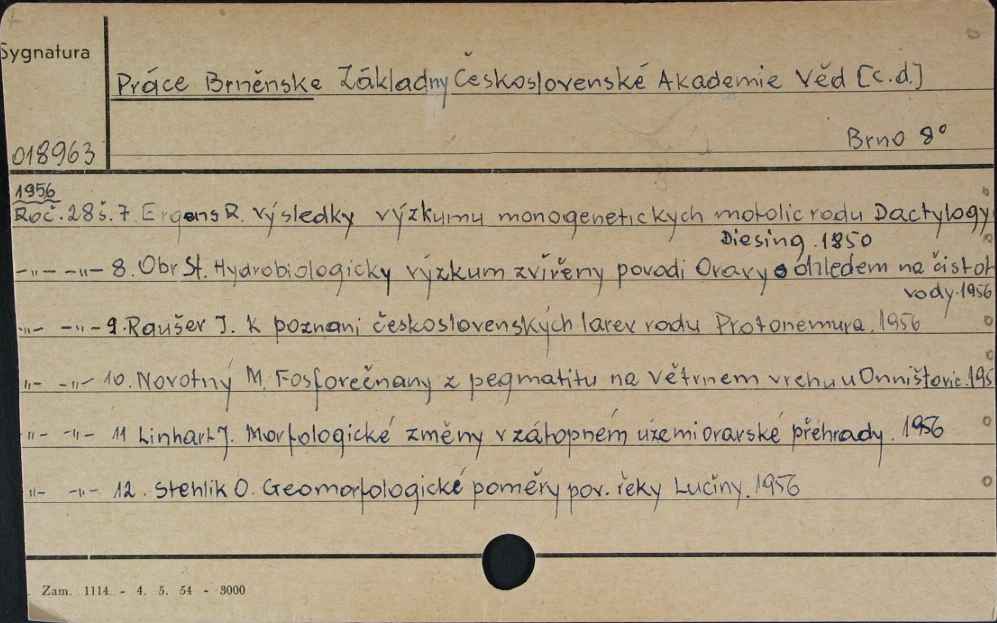 Sygnatura
Práce Brněnske Základny Československé Akademie Věd [c.d.]
018963
Brno 8°
1956
Roč. 28 š. 7. Ergens R. výsledky výzkumu monogenetickych motolic rodu Dactylogy
Diesing. 1850
-"- -"- 8. Obr St. Hydrobiologicky výzkum zvířěny povodi Oravy s ohledem na čistot
vody. 1956
-"- -"- 9. Raušer J. K poznani československých larev rodu Protonemura. 1956
-"- -"- 10. Novotný M. Fosforečnany z pegmatitu na větrnem vrchu u 195
-"- -"- 11 Linhart J. Morfologické změny v zátopném uzemi oravské přehrady. 1956
-"- -"- 12. Stehlik O. Geomorfologické poměry pov. řeky Lučiny. 1956
Zam. 1114 - 4. 5. 54 - 3000